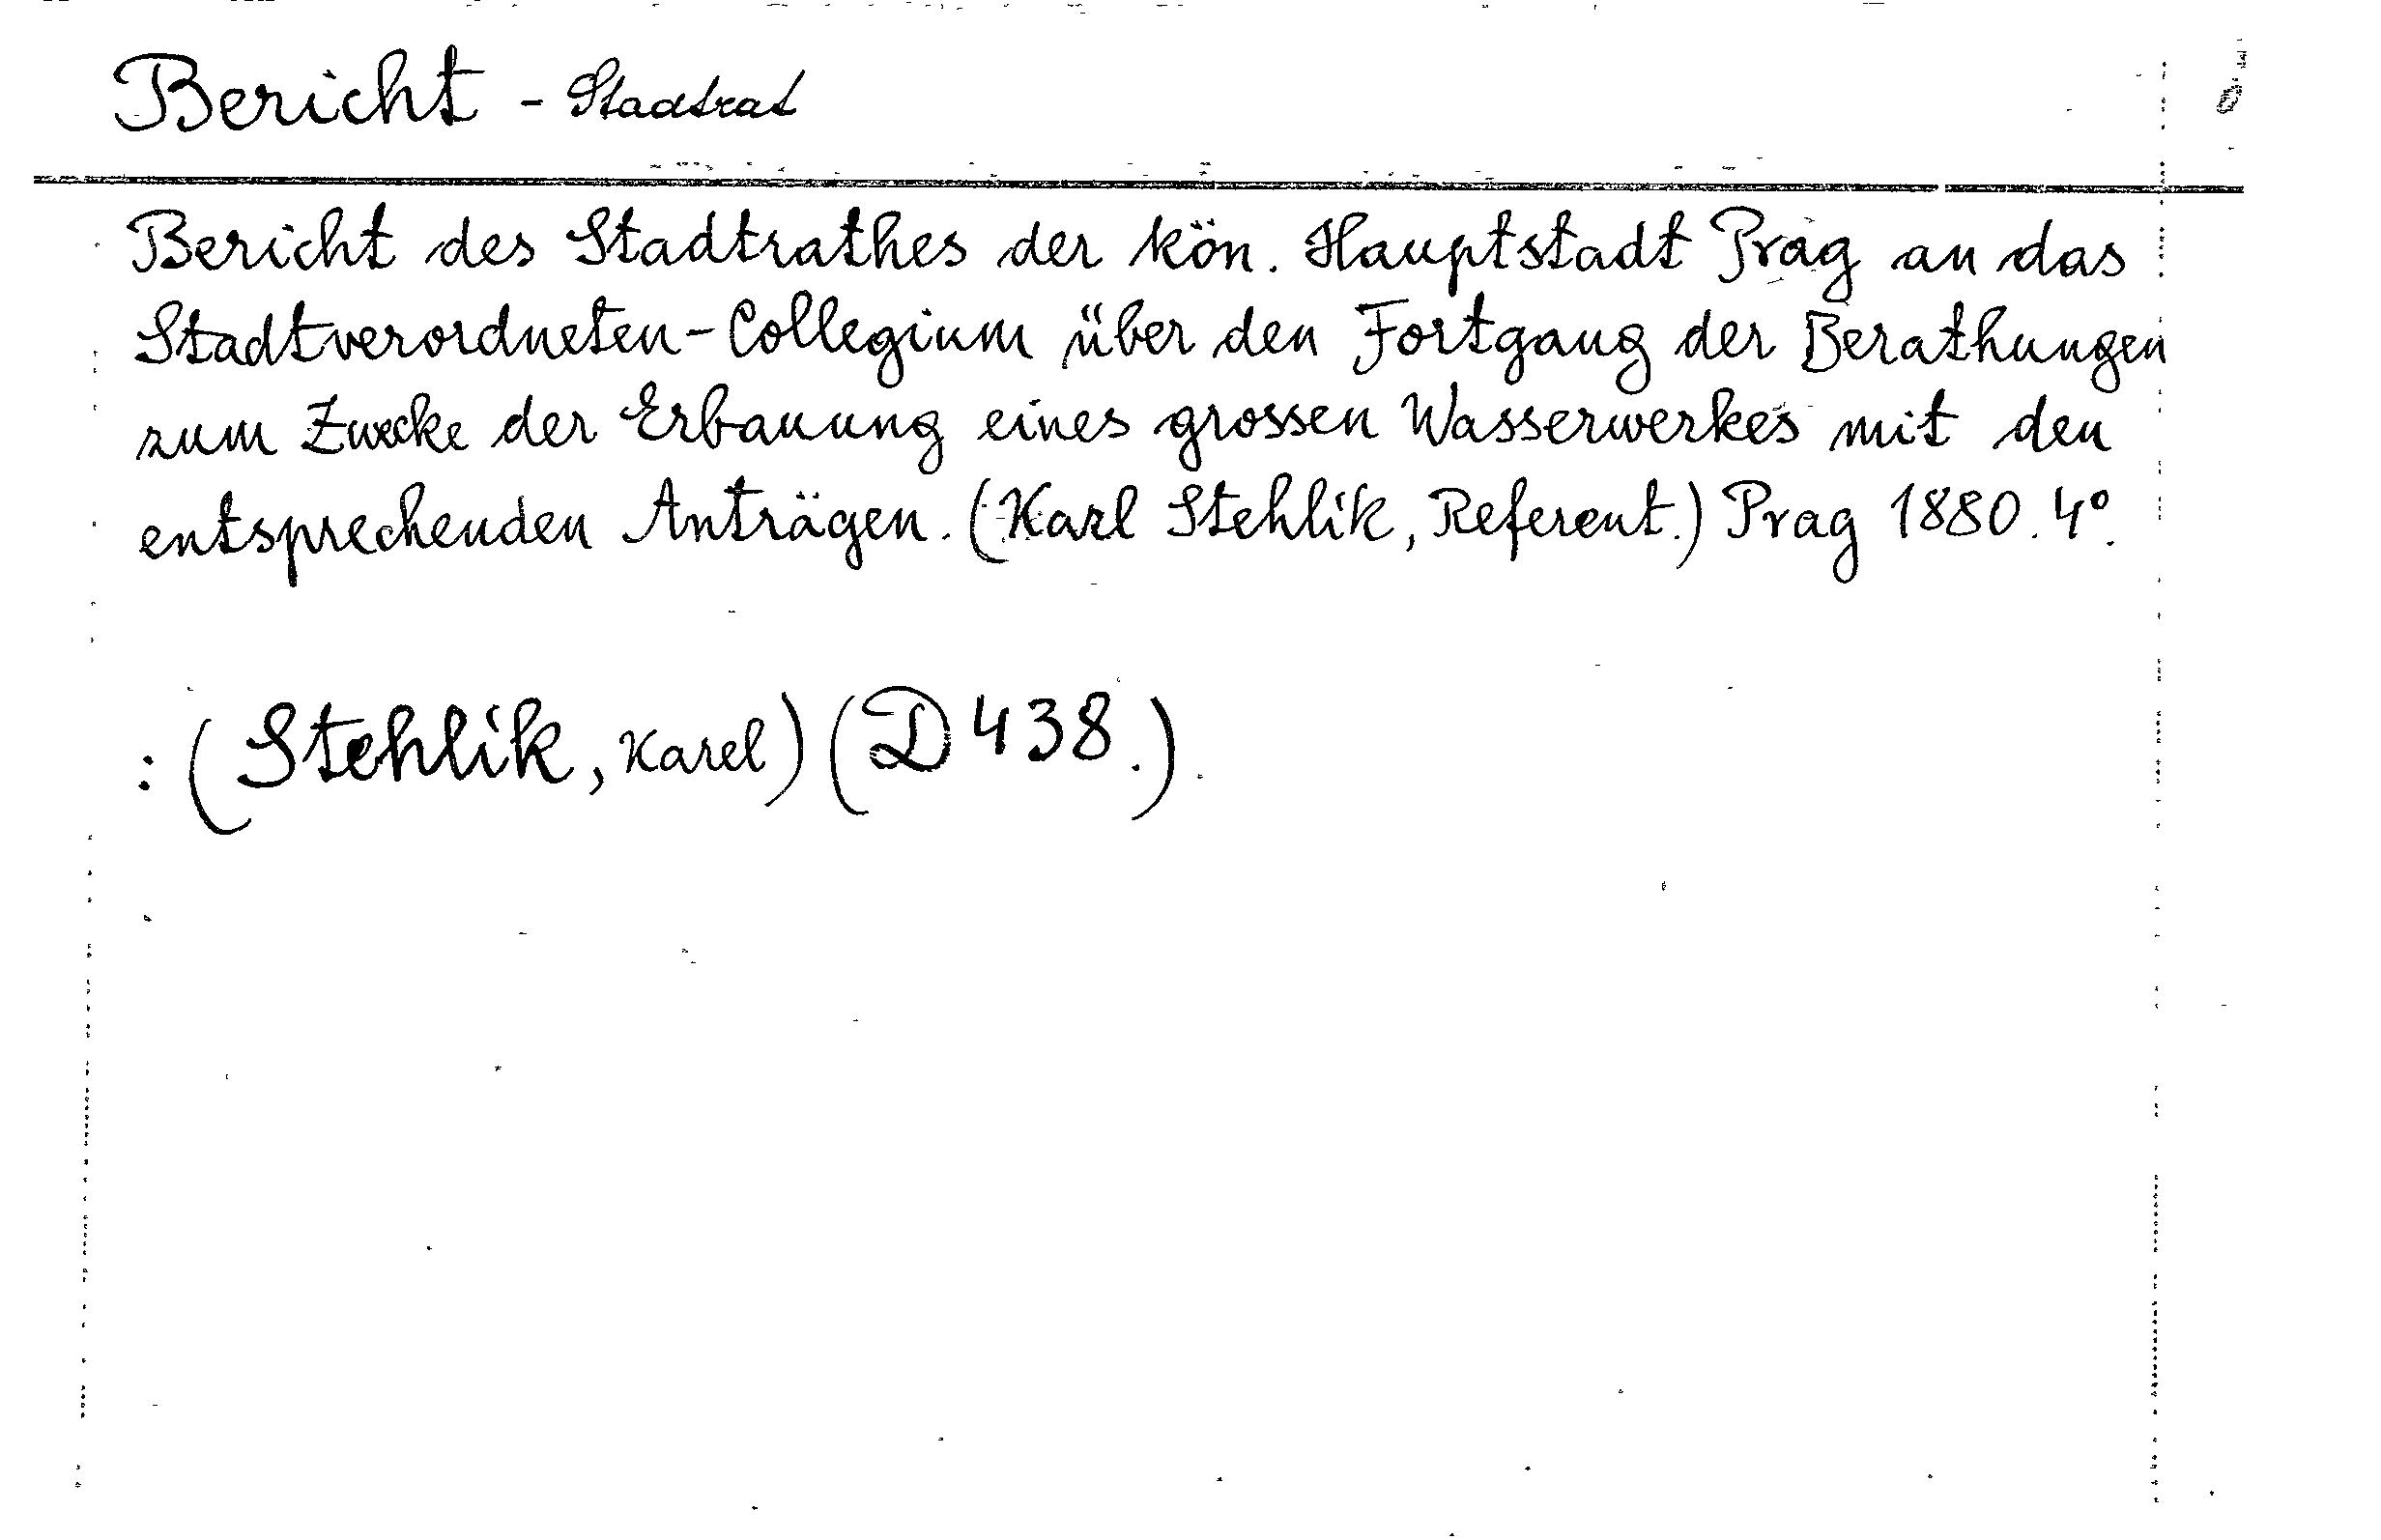 Bericht - Stadtrat
Bericht des Stadtrathes der kön. Hauptstadt Prag an das
Stadtverordneten-Collegium über den Fortgang der Berathungen
zum Zwecke der Erbauung eines grossen Wasserwerkes mit den
entsprechenden Anträgen. (Karl Stehlik, Referent.) Prag 1880. 4°.
: (Stehlík, Karel) (D 438.)